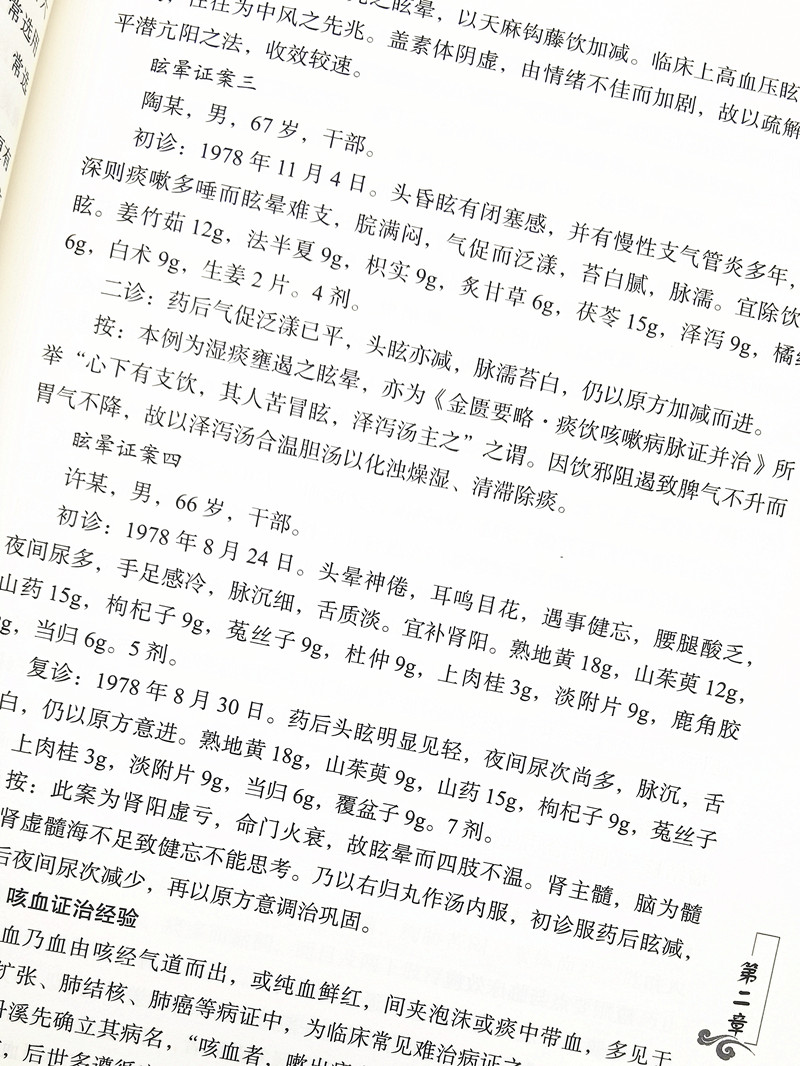 往往为中风之先兆。盖素体阴虚，由情绪不佳而加剧，故以疏解
之眩晕，以天麻钩藤饮加减。临床上高血压眩
平潜亢阳之法，收效较速。
眩晕证案三
陶某，男，67岁，干部。
初诊：1978年11月4日。头昏眩有闭塞感，并有慢性支气管炎多年，
深则痰嗽多唾而眩晕难支，脘满闷，气促而泛漾，苔白腻，脉濡。宜除饮
眩。姜竹茹12g，法半夏9g，枳实9g，炙甘草6g，茯苓15g，泽泻9g，橘
6g，白术9g，生姜2片。4剂。
二诊：药后气促泛漾已平，头眩亦减，脉濡苔白，仍以原方加减而进。
按：本例为湿痰壅遏之眩晕，亦为《金匮要略·痰饮咳嗽病脉证并治》所
举“心下有支饮，其人苦冒眩，泽泻汤主之”之谓。因饮邪阻遏致脾气不升而
胃气不降，故以泽泻汤合温胆汤以化浊燥湿、清滞除痰。
眩晕证案四
许某，男，66岁，干部。
初诊：1978年8月24日。头晕神倦，耳鸣目花，遇事健忘，腰腿酸乏，
夜间尿多，手足感冷，脉沉细，舌质淡。宜补肾阳。熟地黄18g，山茱萸12g，
山药15g，枸杞子9g，菟丝子9g，杜仲9g，上肉桂3g，淡附片9g，鹿角胶
g，当归6g。5剂。
复诊：1978年8月30日。药后头眩明显见轻，夜间尿次尚多，脉沉，舌
白，仍以原方意进。熟地黄18g，山茱萸9g，山药15g，枸杞子9g，菟丝子
上肉桂3g，淡附片9g，当归6g，覆盆子9g。7剂。
按：此案为肾阳虚亏，命门火衰，故眩晕而四肢不温。肾主髓，脑为髓
肾虚髓海不足致健忘不能思考。乃以右归丸作汤内服，初诊服药后眩减，
后夜间尿次减少，再以原方意调治巩固。
咳血证治经验
血乃血由咳经气道而出，或纯血鲜红，间夹泡沫或痰中带血，多见于
扩张、肺结核、肺癌等病证中，为临床常见难治病证之
丹溪先确立其病名，“咳血者，嗽出
后世多遵循
第二章